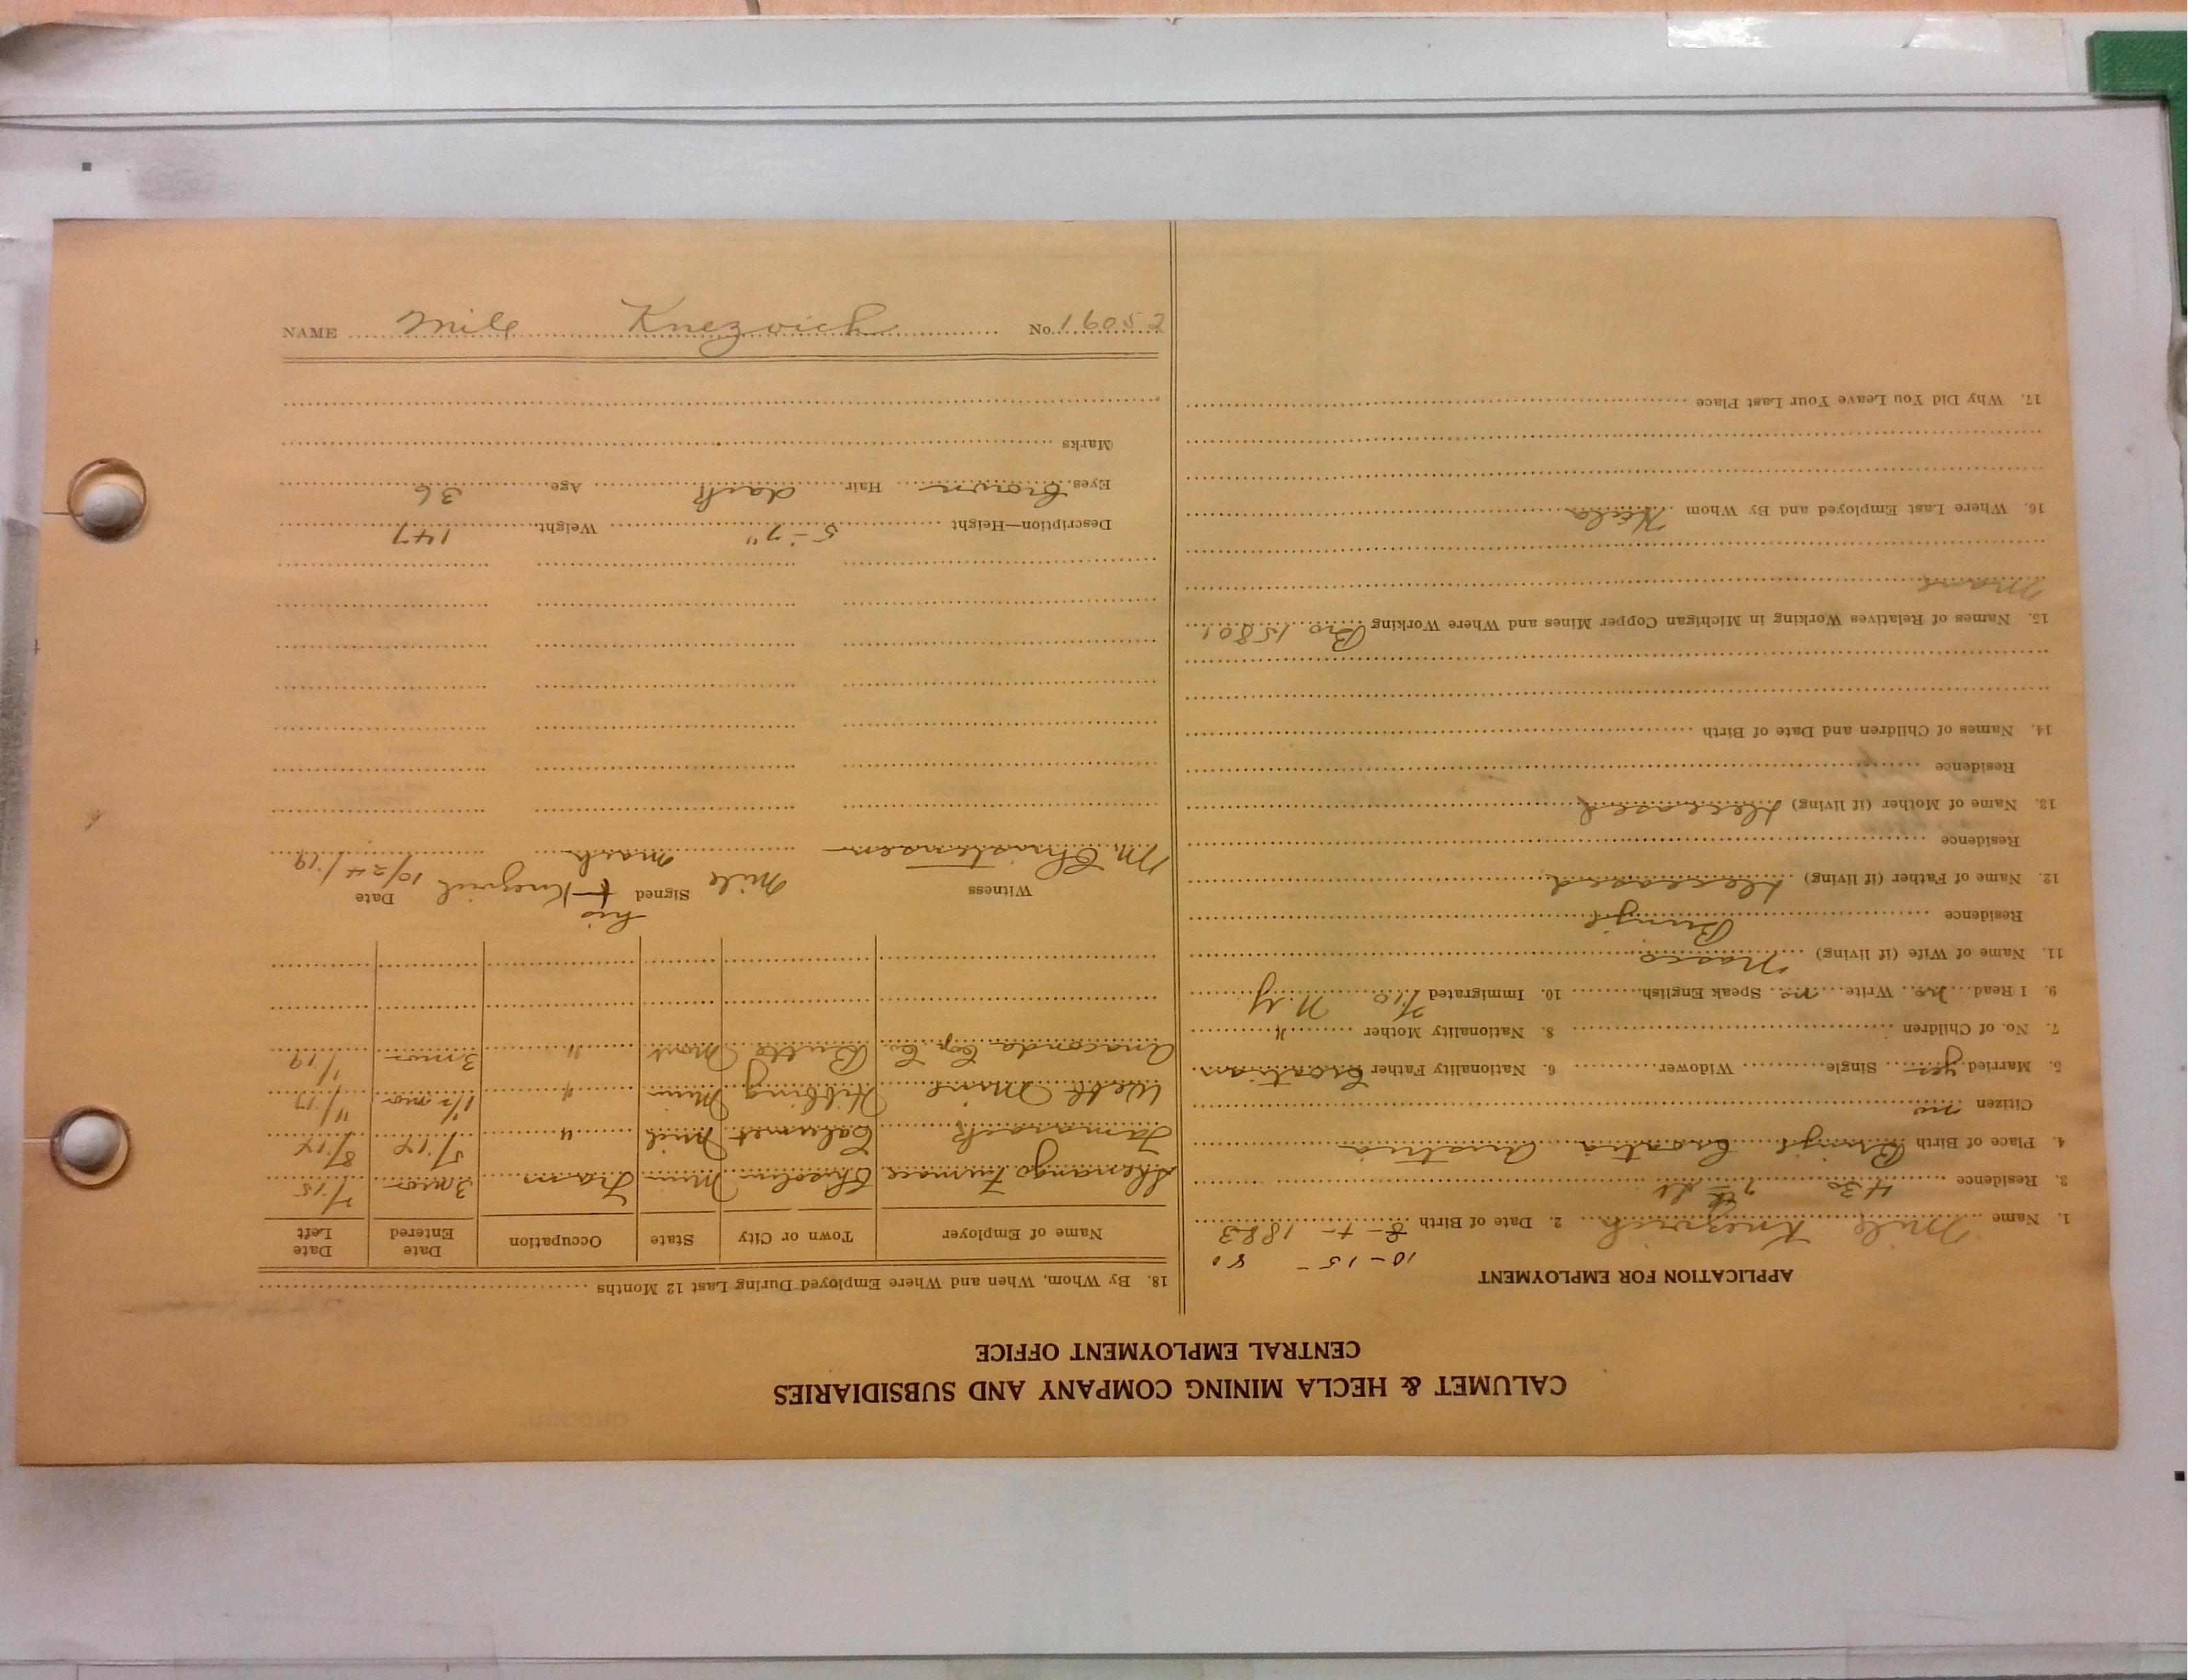 CALUMET & HECLA MINING COMPANY AND SUBSIDIARIES
CENTRAL EMPLOYMENT OFFICE
APPLICATION FOR EMPLOYMENT
10-15- 80
1. Name Mile Knezvich 2. Date of Birth 8-+- 1883
3. Residence 430 7th St
4. Place of Birth Croatia Austria
Citizen no
5. Married yes Single Widower 6. Nationality Father Croatian
7. No. of Children 8. Nationality Mother "
9. I Read no Write no Speak English 10. Immigrated N.Y
11. Name of Wife (if living)
Residence
12. Name of Father (if living) deceased
Residence
13. Name of Mother (if living) deceased
Residence
14. Names of Children and Date of Birth
15. Names of Relatives Working in Michigan Copper Mines and Where Working Bro 15801
16. Where Last Employed and By Whom
17. Why Did You Leave Your Last Place
18. By Whom, When and Where Employed During Last 12 Months
Name of Employer Town or City State Occupation Date Entered Date Left
Shenango Furnace Chisolm Minn Tram 3 mos 7/15
Tamarack Calumet Mich " 5/14 8/14
Webb Mine Hibbing Minn " 1 1/2 mos 11/17
Anaconda Cop. Co. Butte Mont " 3 mos 1/19
Witness Signed Date
M. Christensen Mile his + mark Knezvich 10/24/19
Description—Height 5-7" Weight 147
Eyes brown Hair dark Age 36
Marks
NAME Mile Knezvich No. 16052